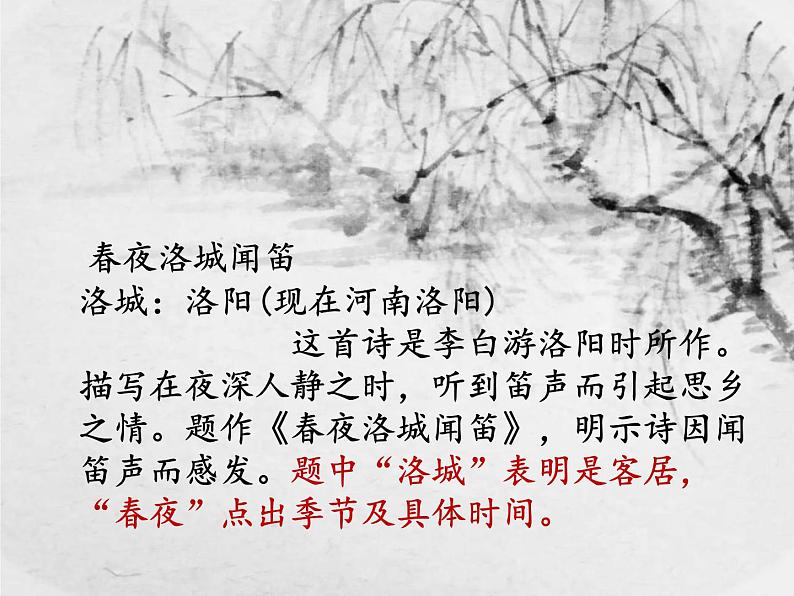 春夜洛城闻笛
洛城：洛阳(现在河南洛阳)
这首诗是李白游洛阳时所作。
描写在夜深人静之时，听到笛声而引起思乡
之情。题作《春夜洛城闻笛》，明示诗因闻
笛声而感发。题中“洛城”表明是客居，
“春夜”点出季节及具体时间。